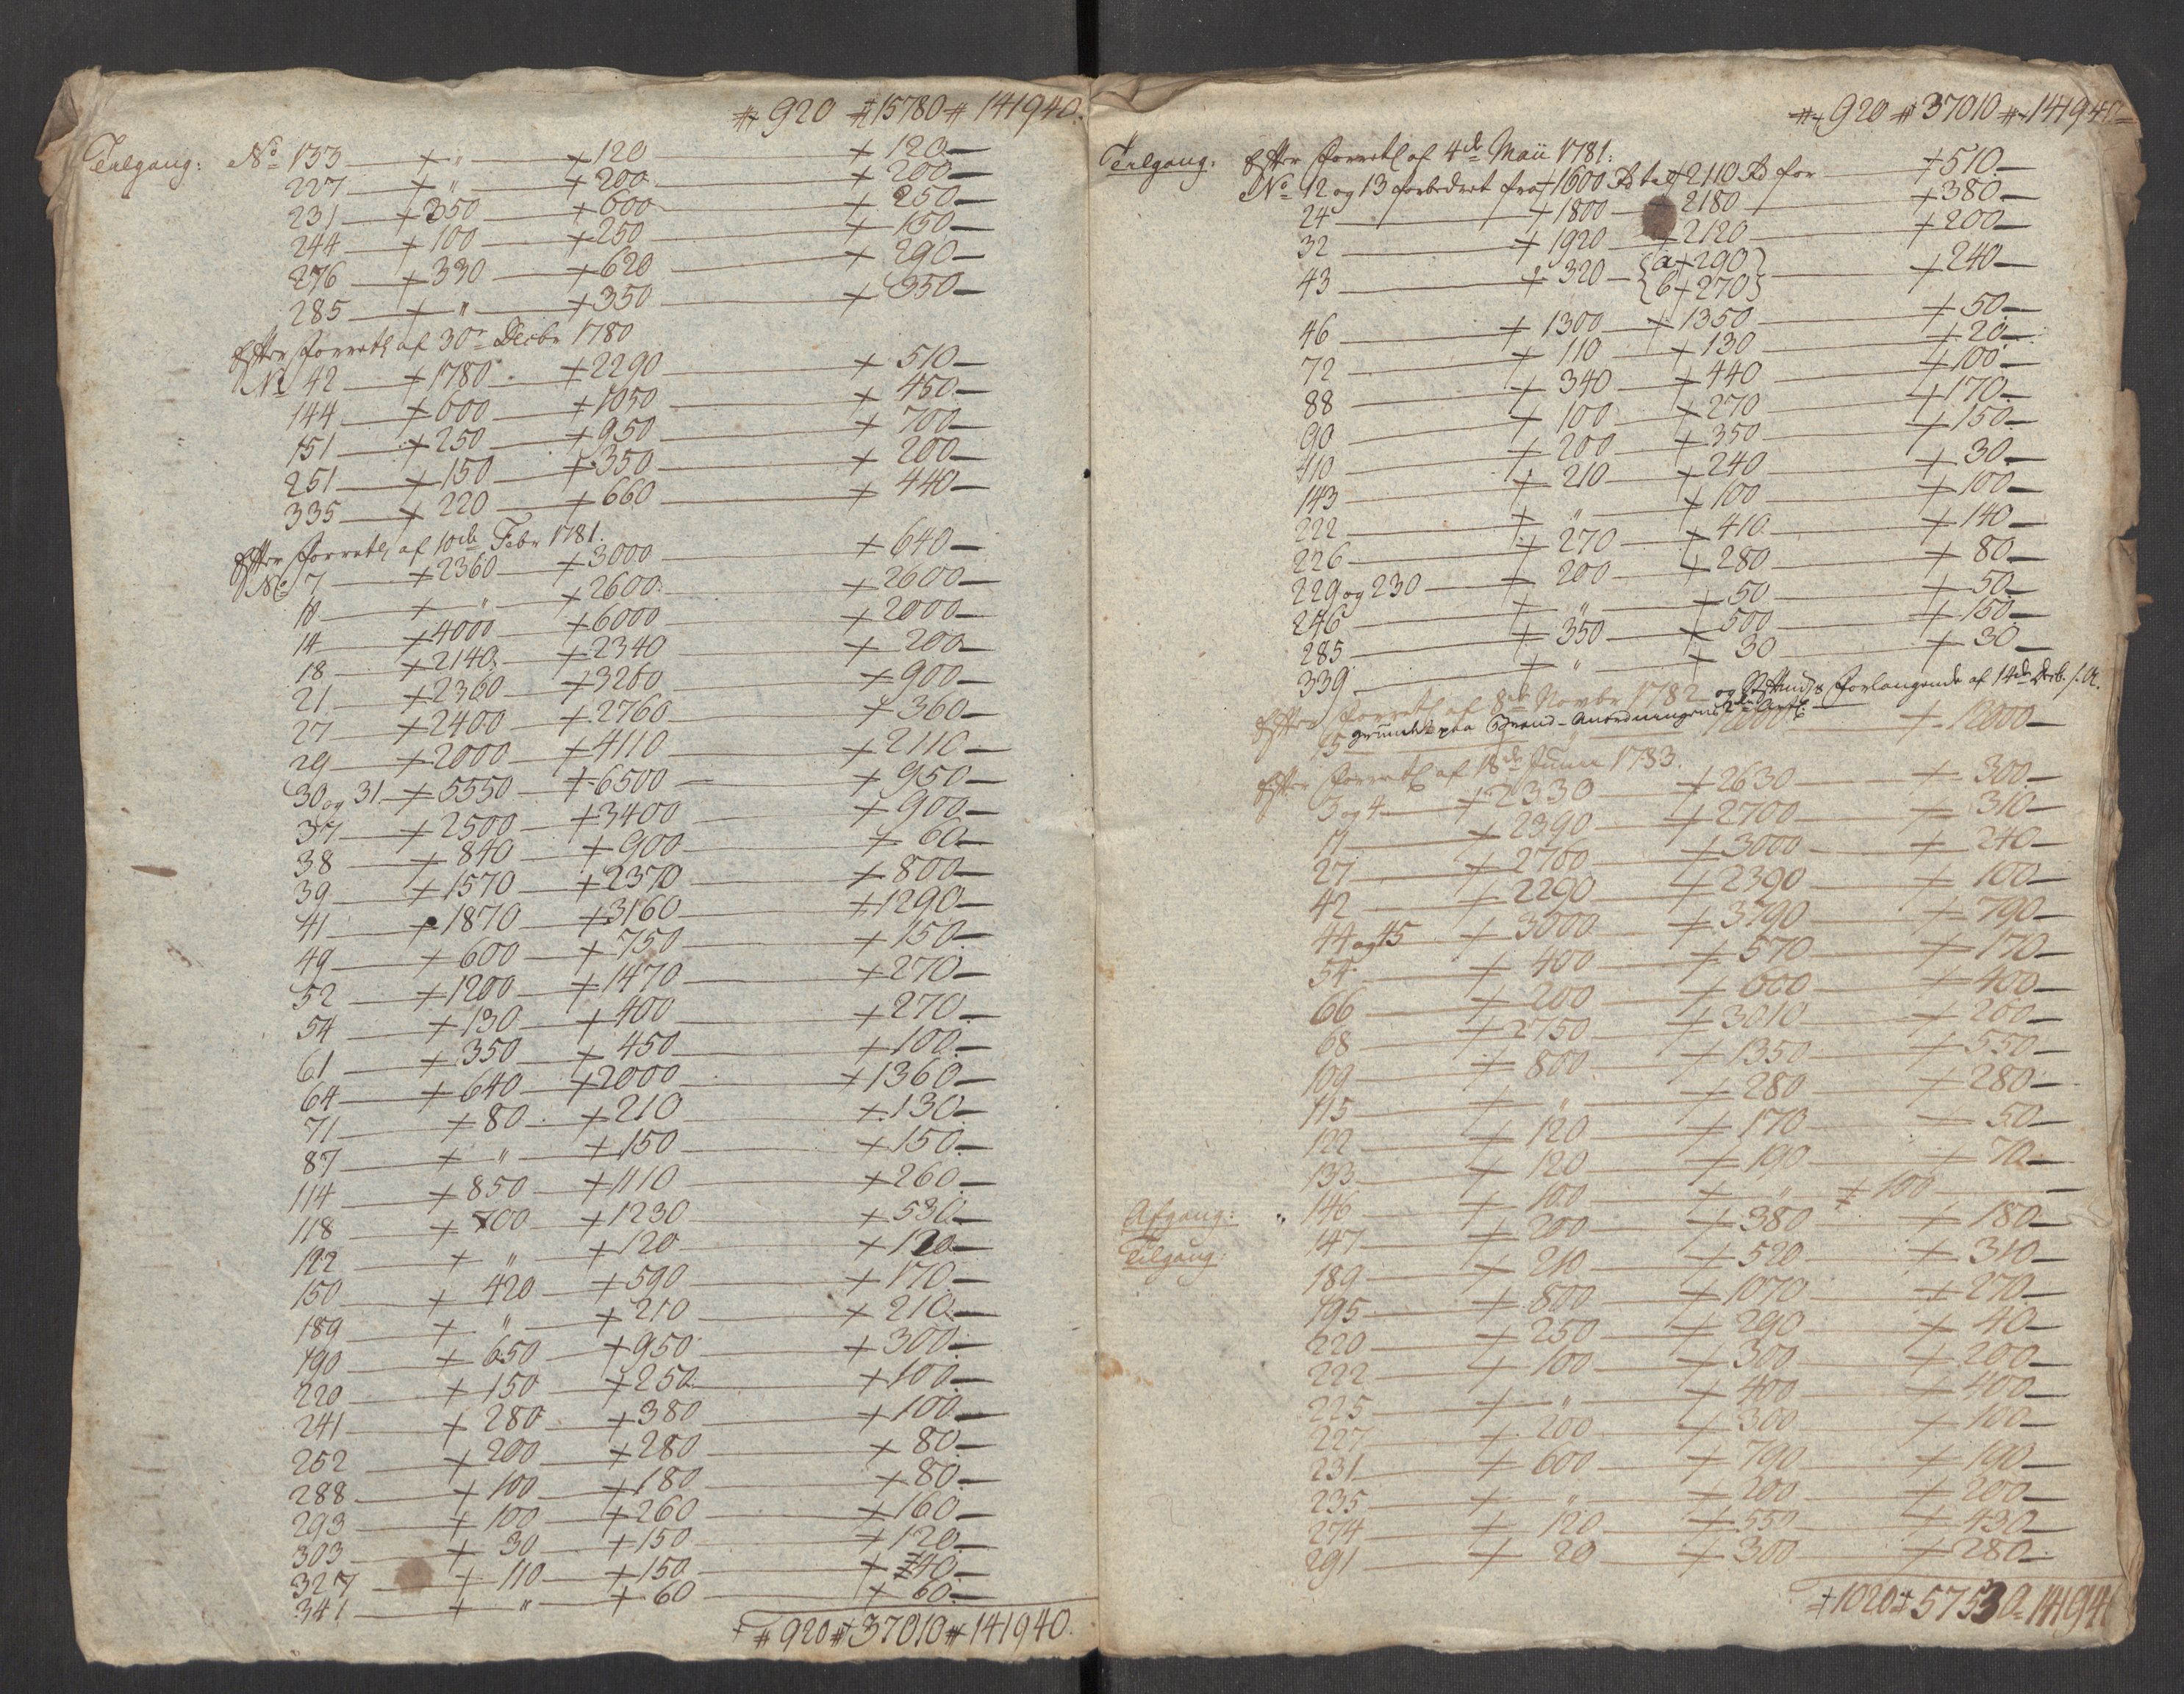 # 920 # 15780 # 141940.
Tilgang: No 133 — + „ — + 120 — + 120 —
227 — + „ — + 200 — + 200 —
231 — + 350 — + 600 — + 250 —
244 — + 100 — + 250 — + 150 —
276 — + 330 — + 620 — + 290 —
285 — + „ — + 350 — + 350 —
Efter forretl af 30te Decbr 1780
No 42 — + 1780 — + 2290 — + 510 —
144 — + 600 — + 1050 — + 450 —
151 — + 250 — + 950 — + 700 —
251 — + 150 — + 350 — + 200 —
335 — + 220 — + 660 — + 440 —
Efter forretl af 10de Febr 1781.
No 7 — + 2360 — + 3000 — + 640 —
10 — + „ — + 2600 — + 2600 —
14 — + 4000 — + 6000 — + 2000 —
18 — + 2140 — + 2340 — + 200 —
21 — + 2360 — + 3260 — + 900 —
27 — + 2400 — + 2760 — + 360 —
29 — + 2000 — + 4110 — + 2110 —
30 og 31 — + 5550 — + 6500 — + 950 —
37 — + 2500 — + 3400 — + 900 —
38 — + 840 — + 900 — + 60 —
39 — + 1570 — + 2370 — + 800 —
41 — + 1870 — + 3160 — + 1290 —
49 — + 600 — + 750 — + 150 —
52 — + 1200 — + 1470 — + 270 —
54 — + 130 — + 400 — + 270 —
61 — + 350 — + 450 — + 100 —
64 — + 640 — + 2000 — + 1360 —
71 — + 80 — + 210 — + 130 —
87 — + „ — + 150 — + 150 —
114 — + 850 — + 1110 — + 260 —
118 — + 700 — + 1230 — + 530 —
122 — + „ — + 120 — + 120 —
150 — + 420 — + 590 — + 170 —
189 — + „ — + 210 — + 210 —
190 — + 650 — + 950 — + 300 —
220 — + 150 — + 250 — + 100 —
241 — + 280 — + 380 — + 100 —
252 — + 200 — + 280 — + 80 —
288 — + 100 — + 180 — + 80 —
293 — + 100 — + 260 — + 160 —
303 — + 30 — + 150 — + 120 —
327 — + 110 — + 150 — + 40 —
341 — + „ — + 60 — + 60 —
# 920 # 37010 # 141940.
# 920 # 37010 # 141940
Tilgang: Efter forretl af 4de Maii 1781:
No 12 og 13 forbedret fra + 1600 Rd til + 2110 Rd for — + 510 —
24 — + 1800 — + 2180 — + 380 —
32 — + 1920 — + 2120 — + 200 —
43 — + 320 — {a + 290} {b + 270} — + 240 —
46 — + 1300 — + 1350 — + 50 —
72 — + 110 — + 130 — + 20 —
88 — + 340 — + 440 — + 100 —
90 — + 100 — + 270 — + 170 —
110 — + 200 — + 350 — + 150 —
143 — + 210 — + 240 — + 30 —
222 — + „ — + 100 — + 100 —
226 — + 270 — + 410 — + 140 —
229 og 230 — + 200 — + 280 — + 80 —
246 — + „ — + 50 — + 50 —
285 — + 350 — + 500 — + 150 —
339 — + „ — + 30 — + 30 —
Efter forretl af 8de Novbr 1782 og forlangende af 14de Decb. s. A.
grundet paa Brand-Anordningens 2den
15 — „ — 12000 — + 12000 —
Efter forretl af 18de Junii 1783.
3 og 4 — + 2330 — + 2630 — + 300 —
11 — + 2390 — + 2700 — + 310 —
27 — + 2760 — + 3000 — + 240 —
42 — + 2290 — + 2390 — + 100 —
44 og 45 — + 3000 — + 3790 — + 790 —
54 — + 400 — + 570 — + 170 —
66 — + 200 — + 600 — + 400 —
68 — + 2750 — + 3010 — + 260 —
109 — + 800 — + 1350 — + 550 —
115 — + „ — + 280 — + 280 —
122 — + 120 — + 170 — + 50 —
133 — + 120 — + 190 — + 70 —
Afgang: „ 146 — + 100 — + „ — + 100 —
Tilgang: 147 — + 200 — + 380 — + 180 —
189 — + 210 — + 520 — + 310 —
195 — + 800 — + 1070 — + 270 —
220 — + 250 — + 290 — + 40 —
222 — + 100 — + 300 — + 200 —
225 — + „ — + 400 — + 400 —
227 — + 200 — + 300 — + 100 —
231 — + 600 — + 790 — + 190 —
235 — + „ — + 200 — + 200 —
274 — + 120 — + 550 — + 430 —
291 — + 20 — + 300 — + 280 —
+ 1020 + 57530 = 14194